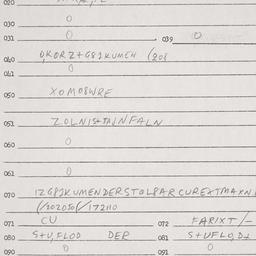 020
030 0
031 0 039 0
040 0,KORZ+G8JKUMEN (208
041 0
050 XOMO8WRE
051 ZOLNIS+MJNFALN
060 0
061 0
070 IZG8JKUMENDERSTOLPARCUREXTMAXNI
(/202050(/172110
071 CU 072 FARIXT/-
080 S+U,FLOD DER 081 S+UFLO,D+
090 0 091 0